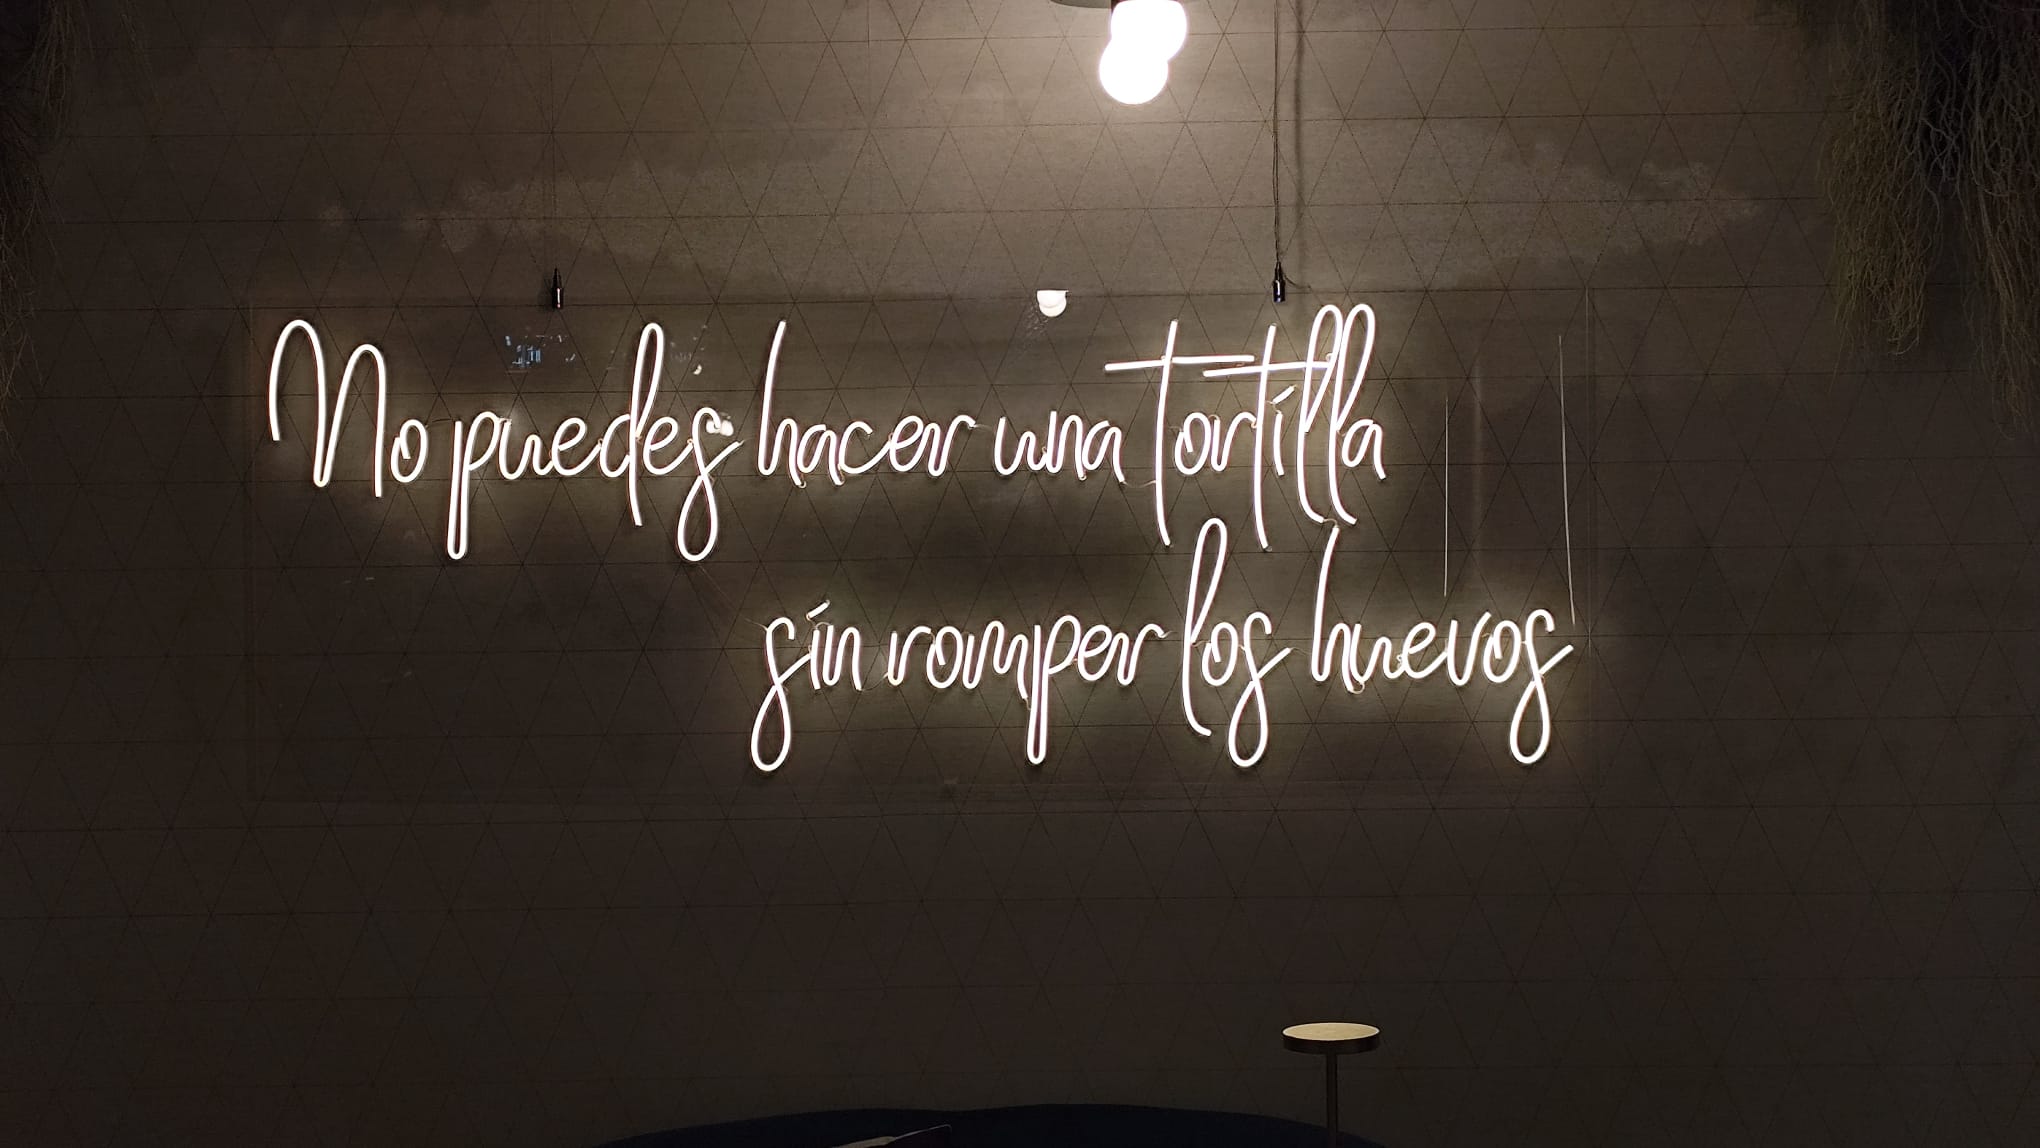 No puedes hacer una tortilla
sin romper los huevos